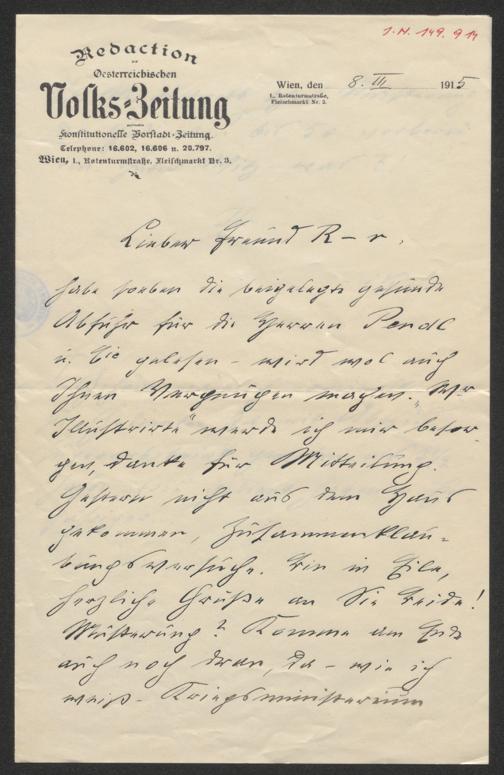 J.N. 149.914
Redaction
der
Oesterreichischen
Volks-Zeitung
Konstitutionelle Vorstadt-Zeitung.
Telephone: 16.602, 16.606 u. 20.797.
Wien, I., Rotenturmstraße, Fleischmarkt Nr. 3.
Wien, den 8. III 1915
I., Rotenturmstraße,
Fleischmarkt Nr. 3.
Lieber Freund R–r,
habe soeben die beigelegte gesunde
Abfuhr für die Herren Pendl
u. Cie gelesen – wird wol auch
Ihnen Vergnügen machen. „Wr
Illustrirte" werde ich mir besor-
gen, danke für Mitteilung.
Gestern nicht aus dem Haus
gekommen, Zusammenklau-
bungsversuche. Bin in Eile,
herzliche Grüße an Sie Beide!
Musterung? Komme am Ende
auch noch dran, da – wie ich
weiß – Kriegsministerium